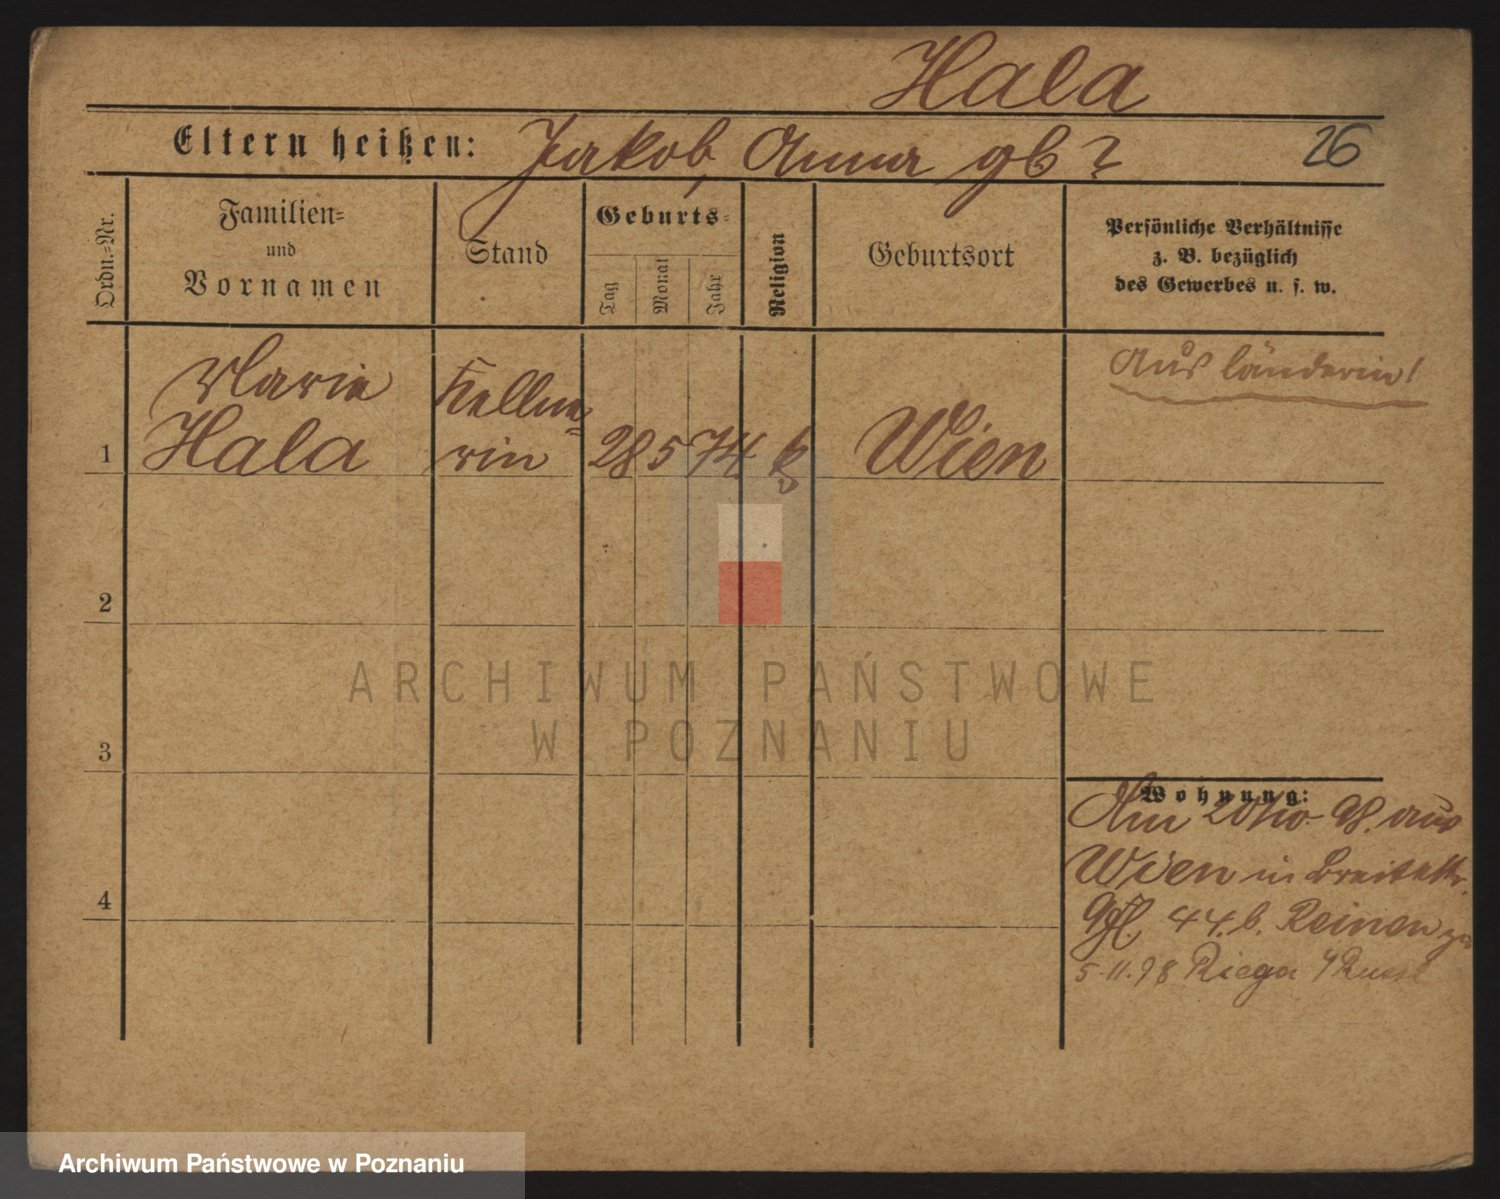 Hala
Eltern heißen: Jakob, Anna gb ?
26
Ordn.=Nr.
Familien=
und
Vornamen
Stand
Geburts=
Tag
Monat
Jahr
Religion
Geburtsort
Persönliche Verhältnisse
z. B. bezüglich
des Gewerbes u. s. w.
Ausländerin!
Marie
Hala
Kellne=
rin
1
28 5 74 k
Wien
2
3
4
Wohnung:
Am 20/10. 98. aus
Wien in Breitestr.
44. b. Reinen
5.11.98 Riega
ARCHIWUM PAŃSTWOWE
W POZNANIU
Archiwum Państwowe w Poznaniu